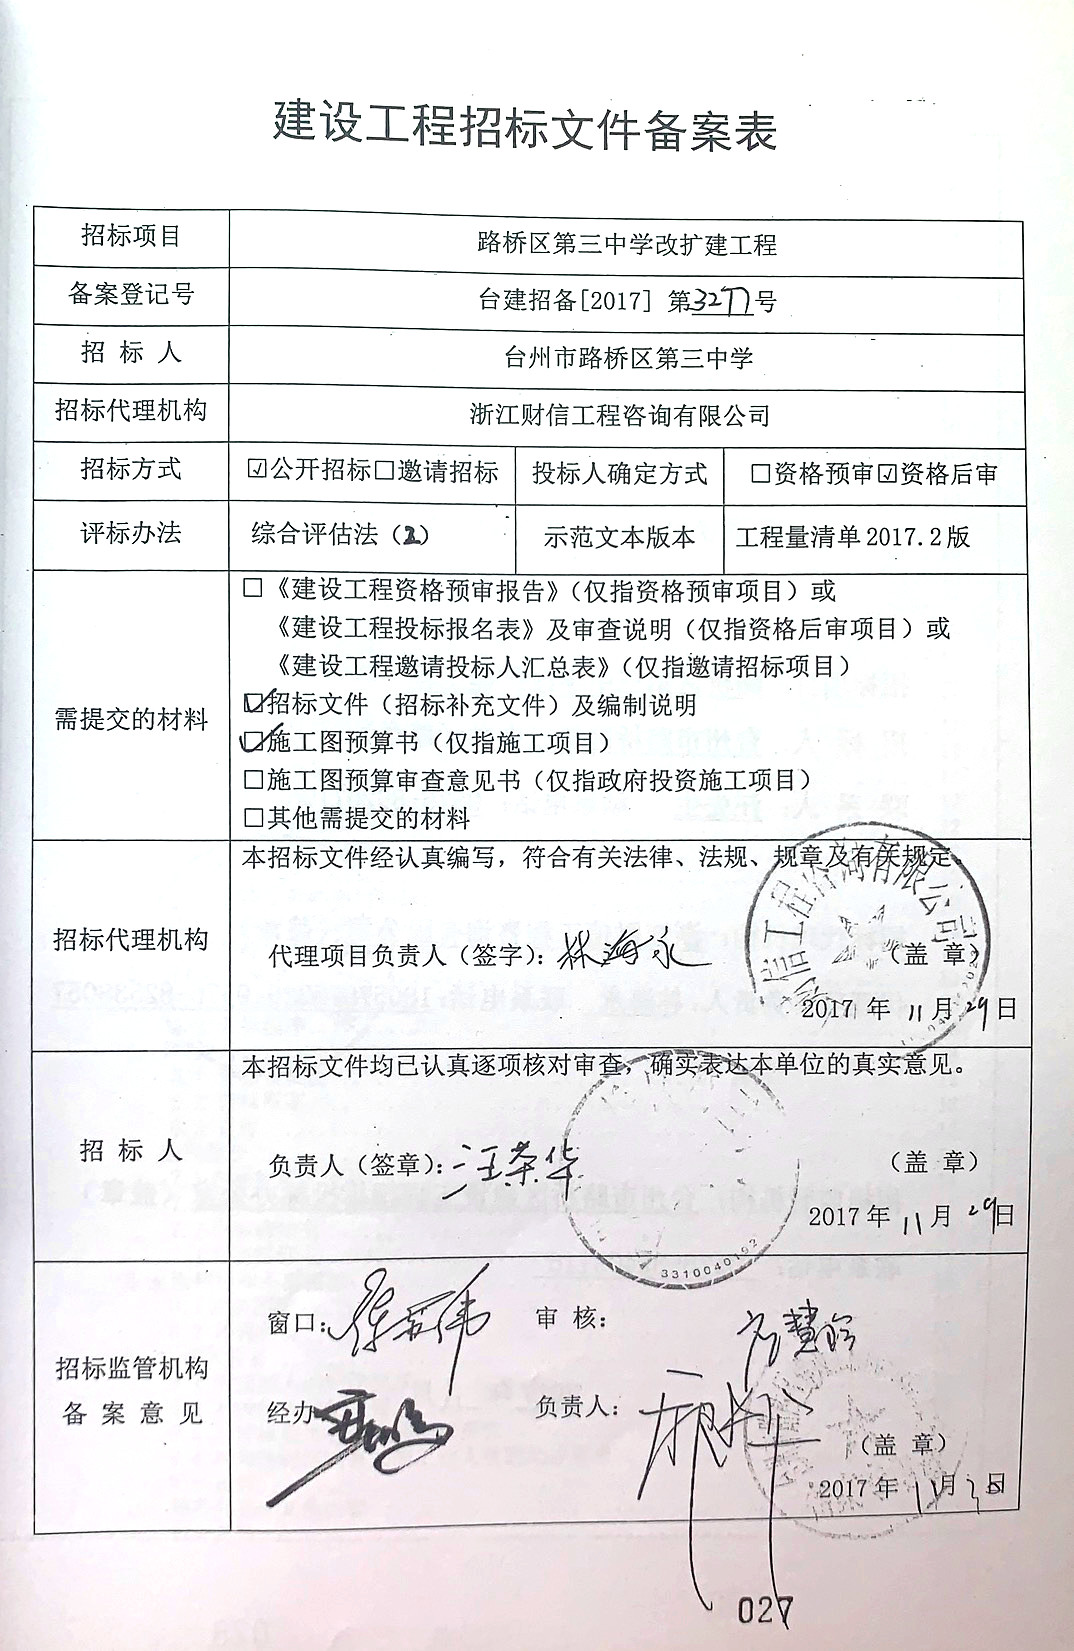 建设工程招标文件备案表
招标项目 路桥区第三中学改扩建工程
备案登记号 台建招备[2017] 第3277号
招 标 人 台州市路桥区第三中学
招标代理机构 浙江财信工程咨询有限公司
招标方式 ☑公开招标□邀请招标 投标人确定方式 □资格预审☑资格后审
评标办法 综合评估法（2） 示范文本版本 工程量清单2017.2版
需提交的材料
□《建设工程资格预审报告》（仅指资格预审项目）或
《建设工程投标报名表》及审查说明（仅指资格后审项目）或
《建设工程邀请投标人汇总表》（仅指邀请招标项目）
☑招标文件（招标补充文件）及编制说明
☑施工图预算书（仅指施工项目）
□施工图预算审查意见书（仅指政府投资施工项目）
□其他需提交的材料
招标代理机构
本招标文件经认真编写，符合有关法律、法规、规章及有关规定。
代理项目负责人（签字）：林海永 （盖 章）
信工程咨询有限公司
2017 年 11 月 29 日
招 标 人
本招标文件均已认真逐项核对审查，确实表达本单位的真实意见。
负责人（签章）：汪荣华 （盖 章）
2017 年 11 月 29 日
3310040192
招标监管机构
备 案 意 见
窗口： 审 核：
经办 负责人：
（盖 章）
2017 年 11 月 30 日
027